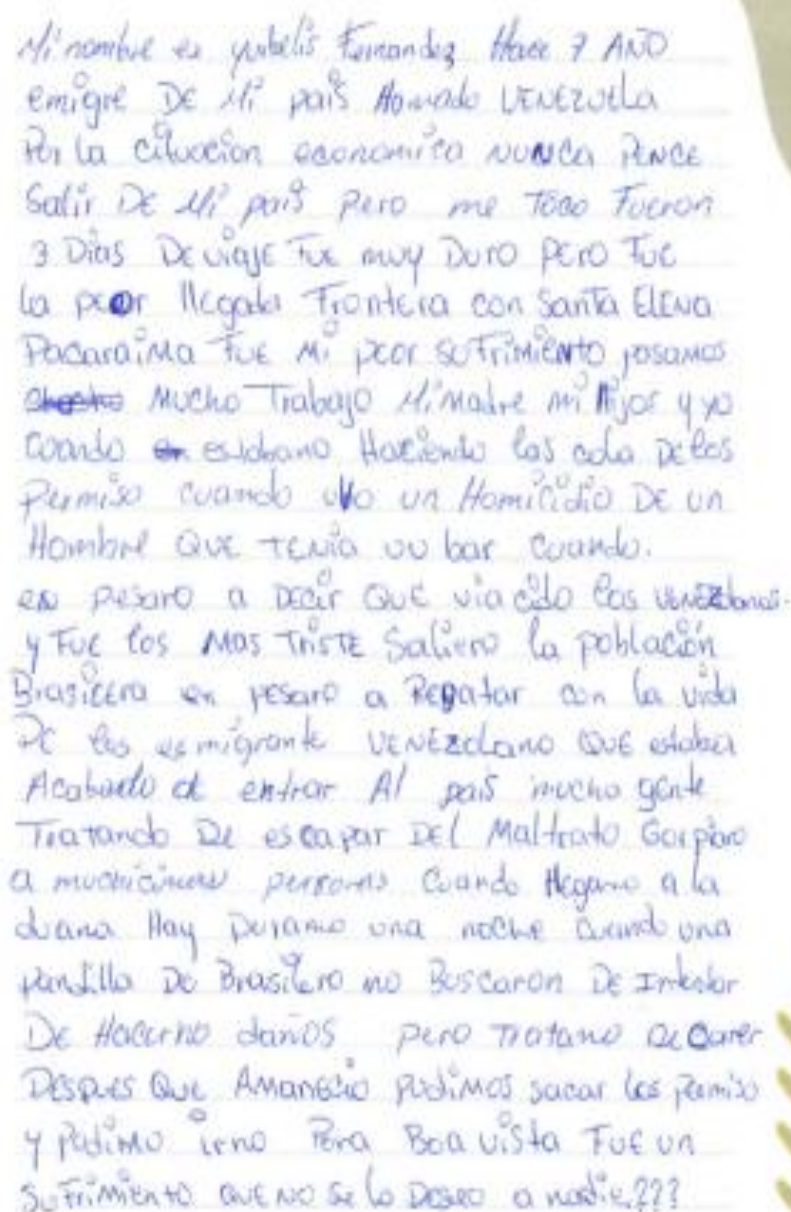 Mi nombre es yubelis Fernandez Hace 7 AÑO
emigre DE Mi pais llamado VENEZUELA
Por la cituacion economica NUNCA PENCE
Salir DE Mi pais Pero me TOCO Fueron
3 Dias De viaje Fue muy Duro PERO Fue
la peor llegada Frontera con Santa ELENA
Pacaraima FUE Mi peor SUFRIMIENTO pasamos
Mucho Trabajo Mi Madre mi hijos y yo
Cuando estabano Haciendo las cola De los
Permiso cuando uvo un Homicidio DE un
Hombre QUE TENIA uu bar cuando.
en pesaro a Decir QUE via cido los venezolanos.
y FUE los MAS TRISTE Saliero la población
Brasilera en pesaro a Repatar con la vida
DE los esmigrante VENEZOLANO QUE estaba
Acabado de entrar Al pais mucho gente
Tratando De escapar DEL Maltrato Golpiaro
a muchicimas personas Cuando llegamo a la
duana Hay Duramo una noche Cuando una
pandilla De Brasilero no Buscaron De Intentar
De Hacerno daños pero Tratamo de Correr
DESPUES QUE AMANECIO PUDIMOS sacar los permiso
y pudimo irno Para Boa vista FUE un
SUFRIMIENTO QUE NO Se lo Deseo a nadie.???